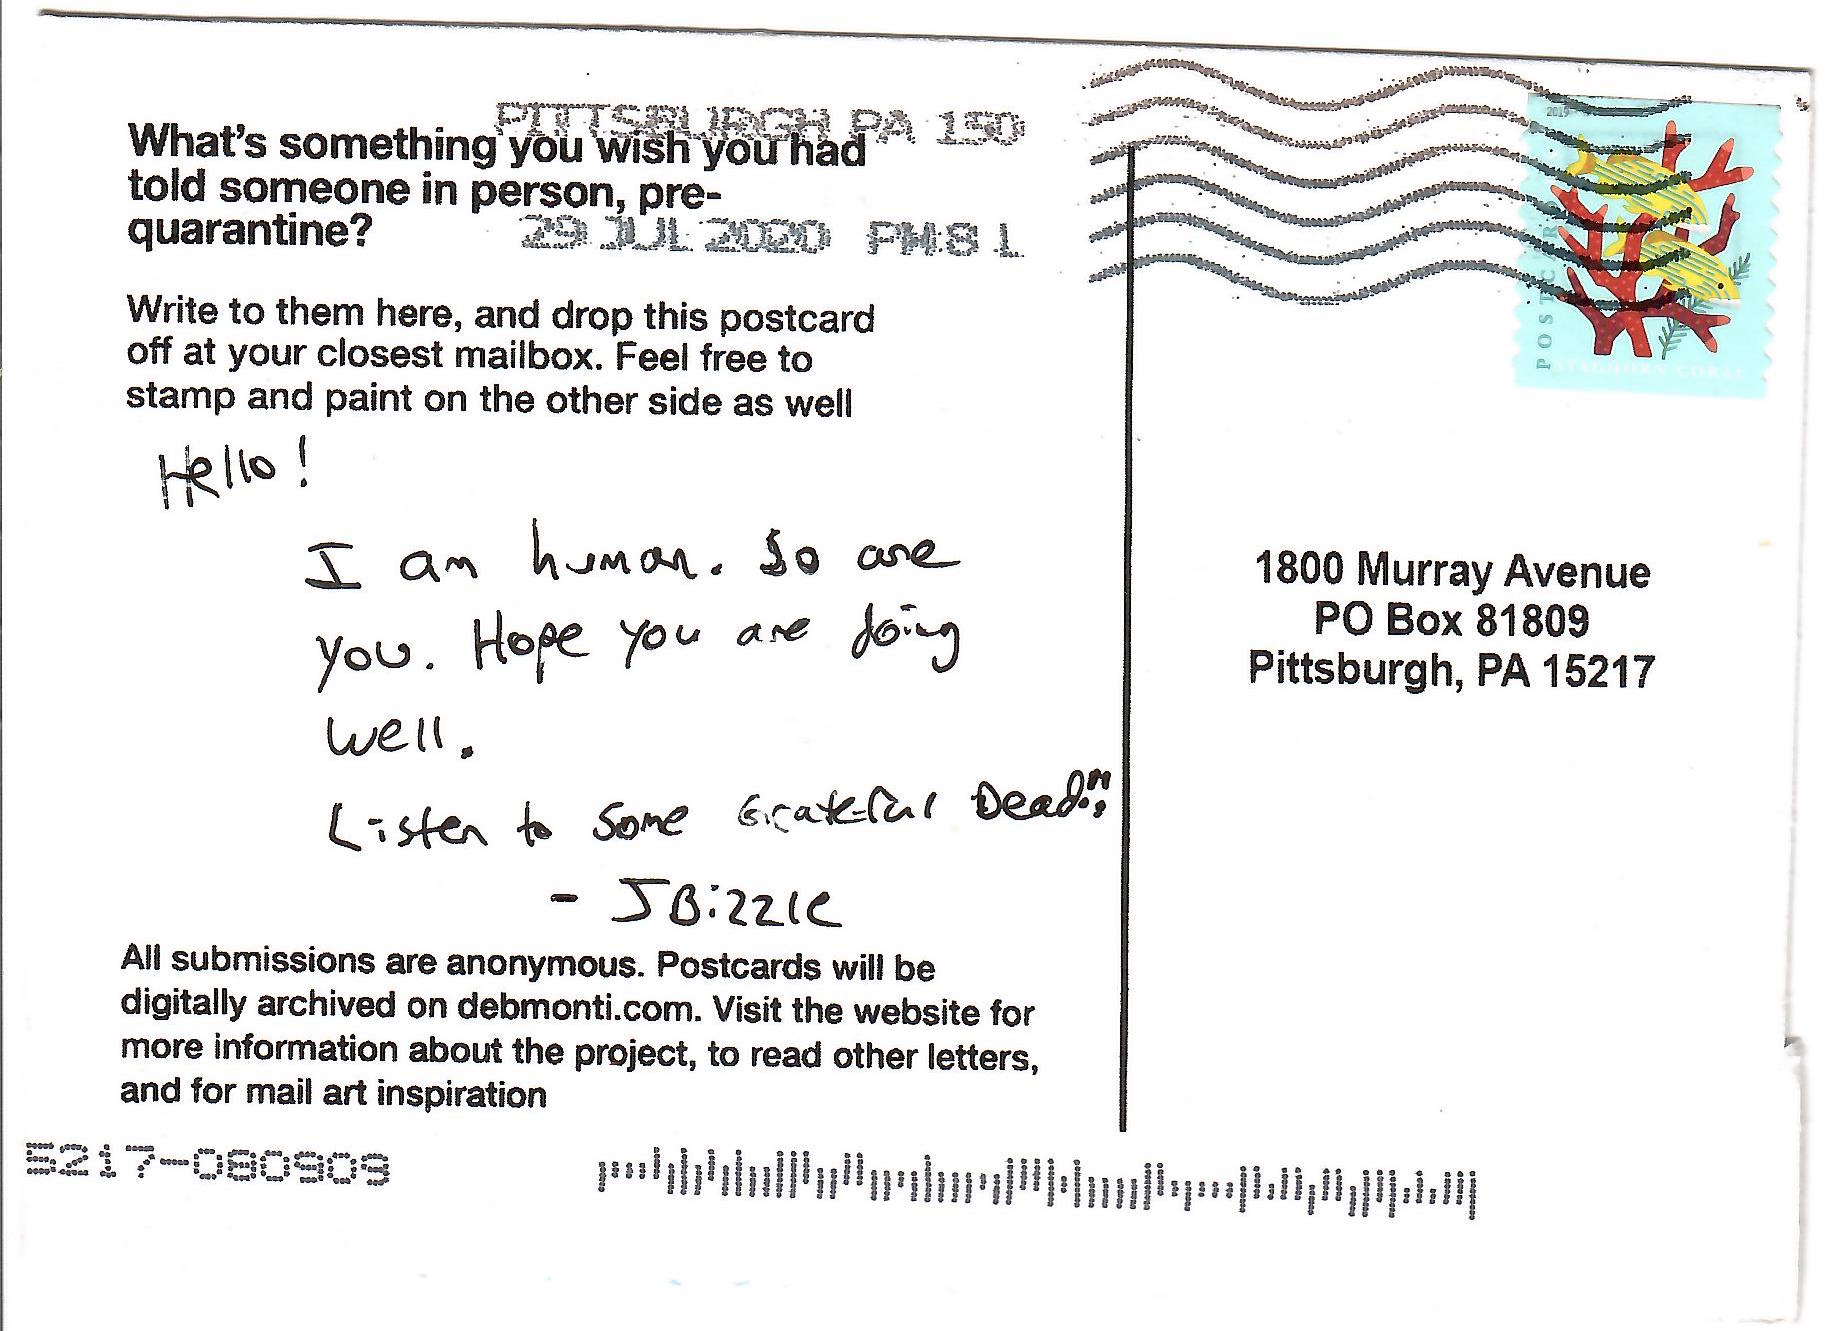 PITTSBURGH PA 150
29 JUL 2020 PM 8 L
What's something you wish you had
told someone in person, pre-
quarantine?
Write to them here, and drop this postcard
off at your closest mailbox. Feel free to
stamp and paint on the other side as well
Hello!
I am human. So are
you. Hope you are doing
well.
Listen to some Grateful Dead
- JBizzle
All submissions are anonymous. Postcards will be
digitally archived on debmonti.com. Visit the website for
more information about the project, to read other letters,
and for mail art inspiration
5217-080909
2019
POSTCARD
STAGHORN CORAL
1800 Murray Avenue
PO Box 81809
Pittsburgh, PA 15217